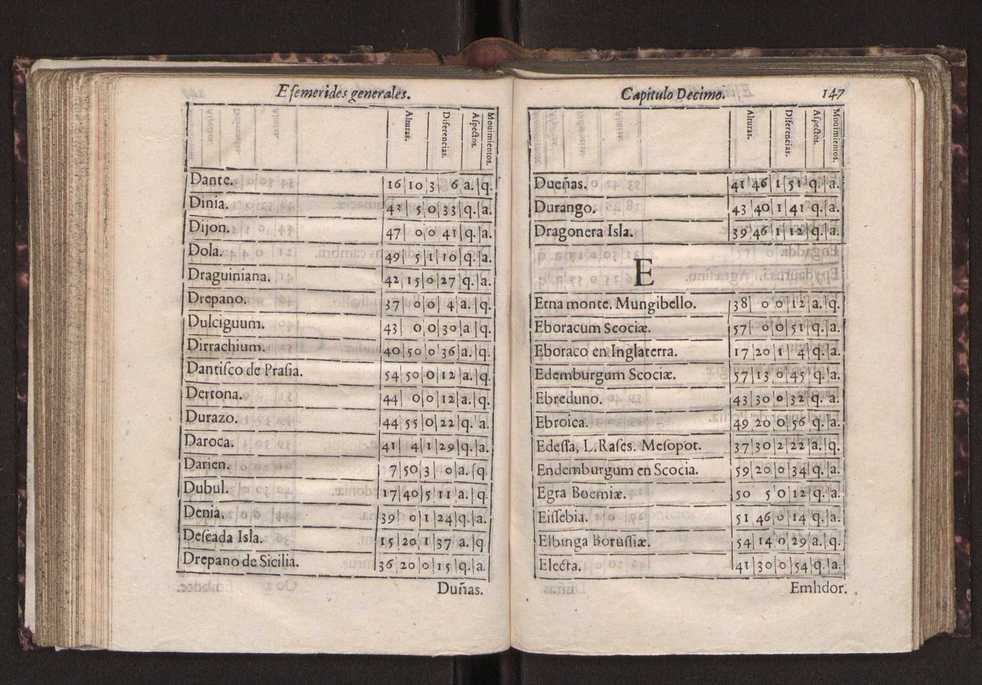 Efemerides generales.
Alturas. Diferencias. Aspectos. Mouimientos.
Dante. 16 10 3 6 a. q.
Dinia. 42 5 0 33 q. a.
Dijon. 47 0 0 41 q. a.
Dola. 49 5 1 10 q. a.
Draguiniana. 42 15 0 27 q. a.
Drepano. 37 0 0 4 a. q.
Dulciguum. 43 0 0 30 a q.
Dirrachium. 40 50 0 36 a. q.
Dantisco de Prasia. 54 50 0 12 a. q.
Dertona. 44 0 0 12 a. q.
Durazo. 44 55 0 22 q. a.
Daroca. 41 4 1 29 q. a.
Darien. 7 50 3 0 a. q.
Dubul. 17 40 5 11 a. q.
Denia. 39 0 1 24 q. a.
Deseada Isla. 15 20 1 37 a. q
Drepano de Sicilia. 36 20 0 15 q. a.
Duñas.
Capitulo Decimo. 147
Alturas. Diferencias. Aspectos. Mouimientos.
Dueñas. 41 46 1 51 q. a.
Durango. 43 40 1 41 q. a.
Dragonera Isla. 39 46 1 12 q. a.
E
Etna monte. Mungibello. 38 0 0 12 a. q.
Eboracum Scociæ. 57 0 0 51 q. a.
Eboraco en Inglaterra. 17 20 1 4 q. a.
Edemburgum Scociæ. 57 13 0 45 q. a.
Ebreduno. 43 30 0 32 q. a.
Ebroica. 49 20 0 56 q. a.
Edessa, L. Rases. Mesopot. 37 30 2 22 a. q.
Endemburgum en Scocia. 59 20 0 34 q. a.
Egra Boemiæ. 50 5 0 12 q. a.
Eissebia. 51 46 0 14 q. a.
Elbinga Borussiæ. 54 14 0 29 a. q.
Electa. 41 30 0 54 q. a.
Emhdor.